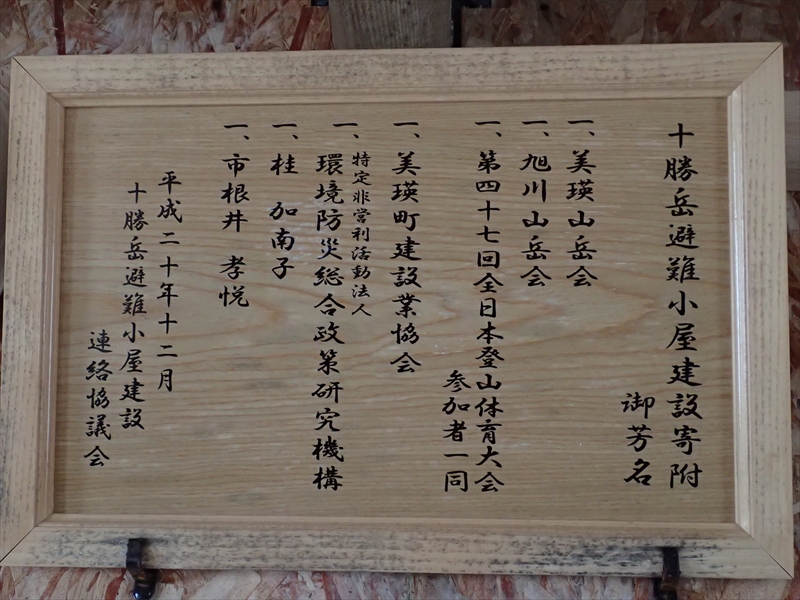 十勝岳避難小屋建設寄附
御芳名
一、美瑛山岳会
一、旭川山岳会
一、第四十七回全日本登山体育大会
参加者一同
一、美瑛町建設業協会
一、特定非営利活動法人
環境防災総合政策研究機構
一、桂 加南子
一、市根井 孝悦
平成二十年十二月
十勝岳避難小屋建設
連絡協議会